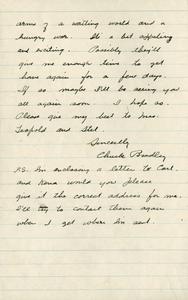 arms of a waiting world and a
hungry war. It's a bit appalling
and exciting. Possibly they'll
give me enough time to get
home again for a few days.
If so maybe I'll be seeing you
all again soon. I hope so.
Please give my best to Mrs.
and
Sincerely
Chuck Bradley
P.S. I'm enclosing a letter to Carl.
and would you please
give it the correct address for me.
I'll try to contact them again
when I get where I'm sent.